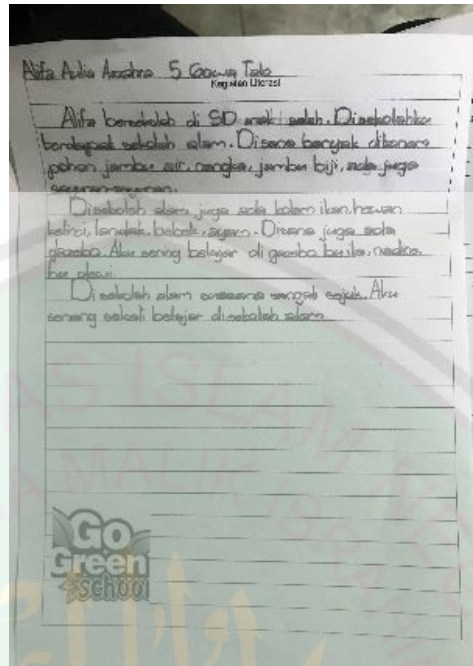 Alifa Aulia Azzahra 5 Gowa Talo
Kegiatan Literasi
Alifa bersekolah di SD anak saleh. Disekolahku
terdapat sekolah alam. Disana banyak ditanami
pohon jambu air, nangka, jambu biji, ada juga
sayuran-sayuran.
Disekolah alam juga ada kolam ikan, hewan
kelinci, landak, bebek, ayam. Disana juga ada
gazebo. Aku sering belajar di gazebo
Di sekolah alam suasana sangat sejuk. Aku
senang sekali belajar disekolah alam
Go
Green
School
AS ISLAM NE
MALIK IBRA